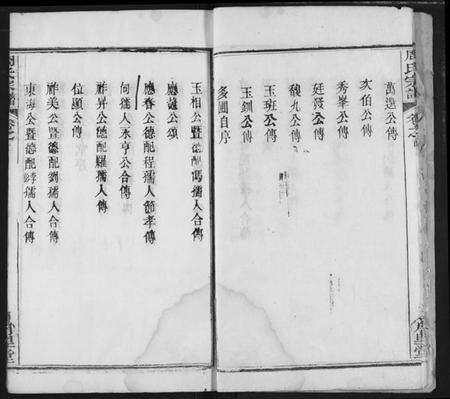 周氏宗譜
萬選公傳
次伯公傳
秀峯公傳
廷發公傳
魏九公傳
玉班公傳
玉釧公傳
多圃自序
玉相公暨德配馮孺人合傳
應龍公頌
應春公德配程孺人節孝傳
何孺人永亨公合傳
祥昇公德配羅孺人傳
位顯公傳
祥美公暨德配劉孺人合傳
東海公暨德配李孺人合傳